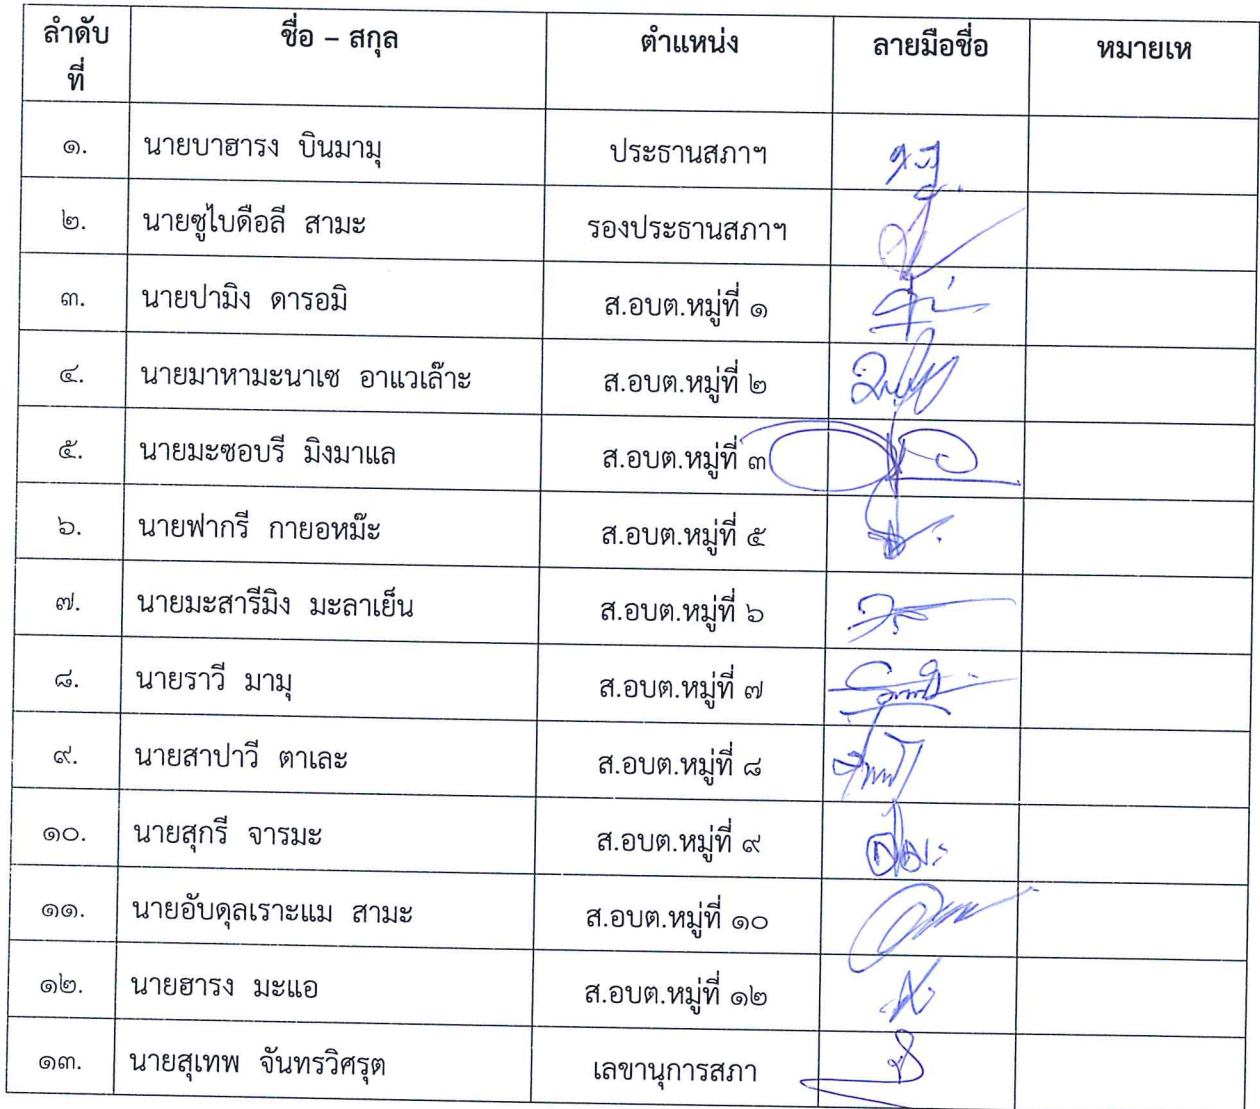 ลำดับ ชื่อ – สกุล ตำแหน่ง ลายมือชื่อ หมายเห
ที่
๑. นายบาฮารง บินมามุ ประธานสภาฯ
๒. นายซูไบดือลี สามะ รองประธานสภาฯ
๓. นายปามิง ดารอมิ ส.อบต.หมู่ที่ ๑
๔. นายมาหามะนาเซ อาแวเล๊าะ ส.อบต.หมู่ที่ ๒
๕. นายมะซอบรี มิงมาแล ส.อบต.หมู่ที่ ๓
๖. นายฟากรี กายอหม๊ะ ส.อบต.หมู่ที่ ๕
๗. นายมะสารีมิง มะลาเย็น ส.อบต.หมู่ที่ ๖
๘. นายราวี มามุ ส.อบต.หมู่ที่ ๗
๙. นายสาปาวี ตาเละ ส.อบต.หมู่ที่ ๘
๑๐. นายสุกรี จารมะ ส.อบต.หมู่ที่ ๙
๑๑. นายอับดุลเราะแม สามะ ส.อบต.หมู่ที่ ๑๐
๑๒. นายฮารง มะแอ ส.อบต.หมู่ที่ ๑๒
๑๓. นายสุเทพ จันทรวิศรุต เลขานุการสภา